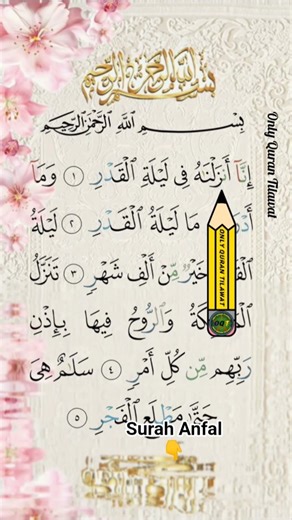 بِسْمِ اللَّهِ الرَّحْمَٰنِ الرَّحِيمِ
بِسْمِ اللَّهِ الرَّحْمَٰنِ الرَّحِيمِ
إِنَّآ أَنزَلْنَٰهُ فِى لَيْلَةِ ٱلْقَدْرِ ١ وَمَآ
مَا لَيْلَةُ ٱلْقَدْرِ ٢ لَيْلَةُ
خَيْرٌ مِّنْ أَلْفِ شَهْرٍ ٣ تَنَزَّلُ
وَٱلرُّوحُ فِيهَا بِإِذْنِ
رَبِّهِم مِّن كُلِّ أَمْرٍ ٤ سَلَٰمٌ هِىَ
حَتَّىٰ مَطْلَعِ ٱلْفَجْرِ ٥
Only Quran Tilawat
ONLY QURAN TILAWAT
Surah Anfal
👇